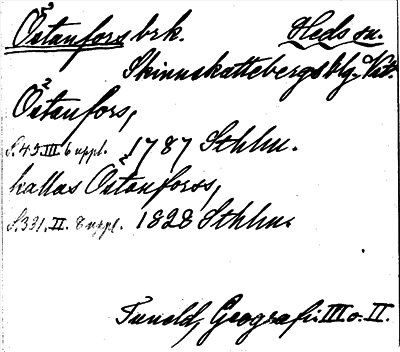 Östanfors brk. Heds sn.
Skinnskattebergs blg. Vstm.
Östanfors,
S. 45. III. 6 uppl. 1787 Sthlm.
kallas Östanforss,
S. 331. II. 8 uppl. 1828 Sthlm.
Tuneld, Geografi. III o. II.